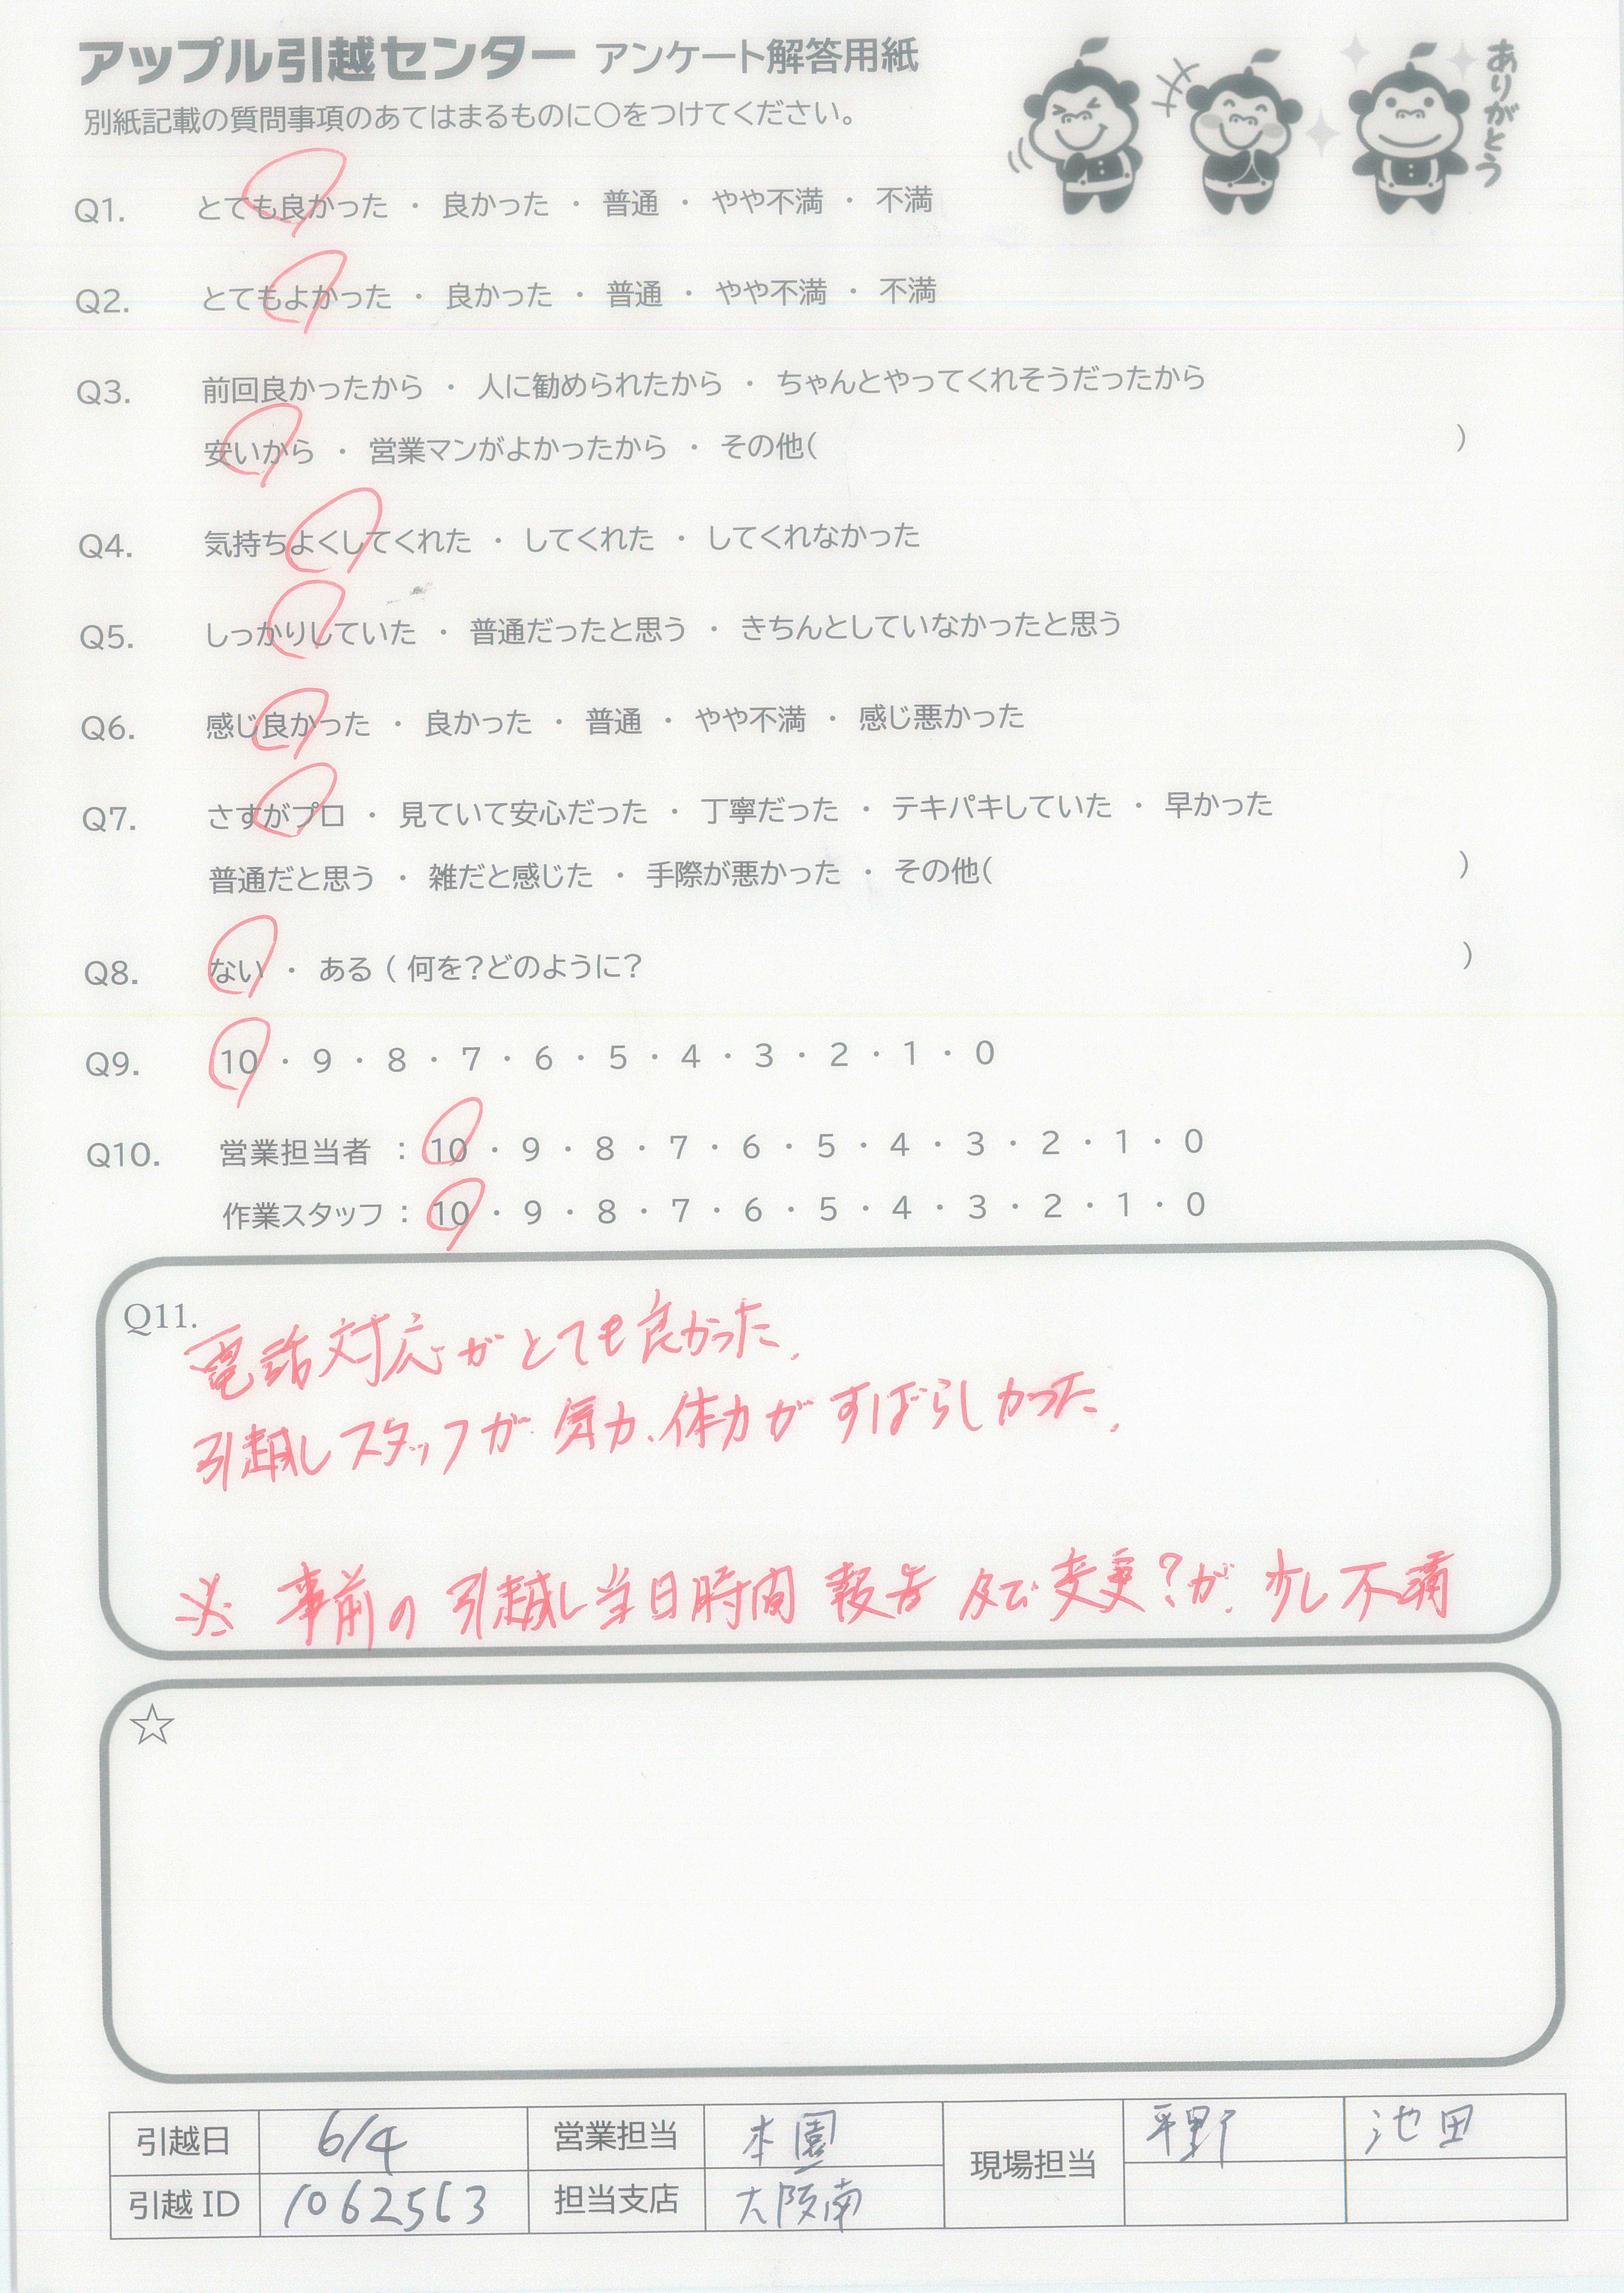 アップル引越センター アンケート解答用紙
ありがとう
別紙記載の質問事項のあてはまるものに〇をつけてください。
Q1. とても良かった ・ 良かった ・ 普通 ・ やや不満 ・ 不満
Q2. とてもよかった ・ 良かった ・ 普通 ・ やや不満 ・ 不満
Q3. 前回良かったから ・ 人に勧められたから ・ ちゃんとやってくれそうだったから
安いから ・ 営業マンがよかったから ・ その他( )
Q4. 気持ちよくしてくれた ・ してくれた ・ してくれなかった
Q5. しっかりしていた ・ 普通だったと思う ・ きちんとしていなかったと思う
Q6. 感じ良かった ・ 良かった ・ 普通 ・ やや不満 ・ 感じ悪かった
Q7. さすがプロ ・ 見ていて安心だった ・ 丁寧だった ・ テキパキしていた ・ 早かった
普通だと思う ・ 雑だと感じた ・ 手際が悪かった ・ その他( )
Q8. ない ・ ある ( 何を?どのように? )
Q9. 10 ・ 9 ・ 8 ・ 7 ・ 6 ・ 5 ・ 4 ・ 3 ・ 2 ・ 1 ・ 0
Q10. 営業担当者 : 10 ・ 9 ・ 8 ・ 7 ・ 6 ・ 5 ・ 4 ・ 3 ・ 2 ・ 1 ・ 0
作業スタッフ : 10 ・ 9 ・ 8 ・ 7 ・ 6 ・ 5 ・ 4 ・ 3 ・ 2 ・ 1 ・ 0
Q11. 電話対応がとても良かった。
引越しスタッフが気力、体力がすばらしかった。
※ 事前の引越し当日時間報告及び変更?が、少し不満
☆
引越日 6/4 営業担当 本園 現場担当 平野 池田
引越ID 1062563 担当支店 大阪南